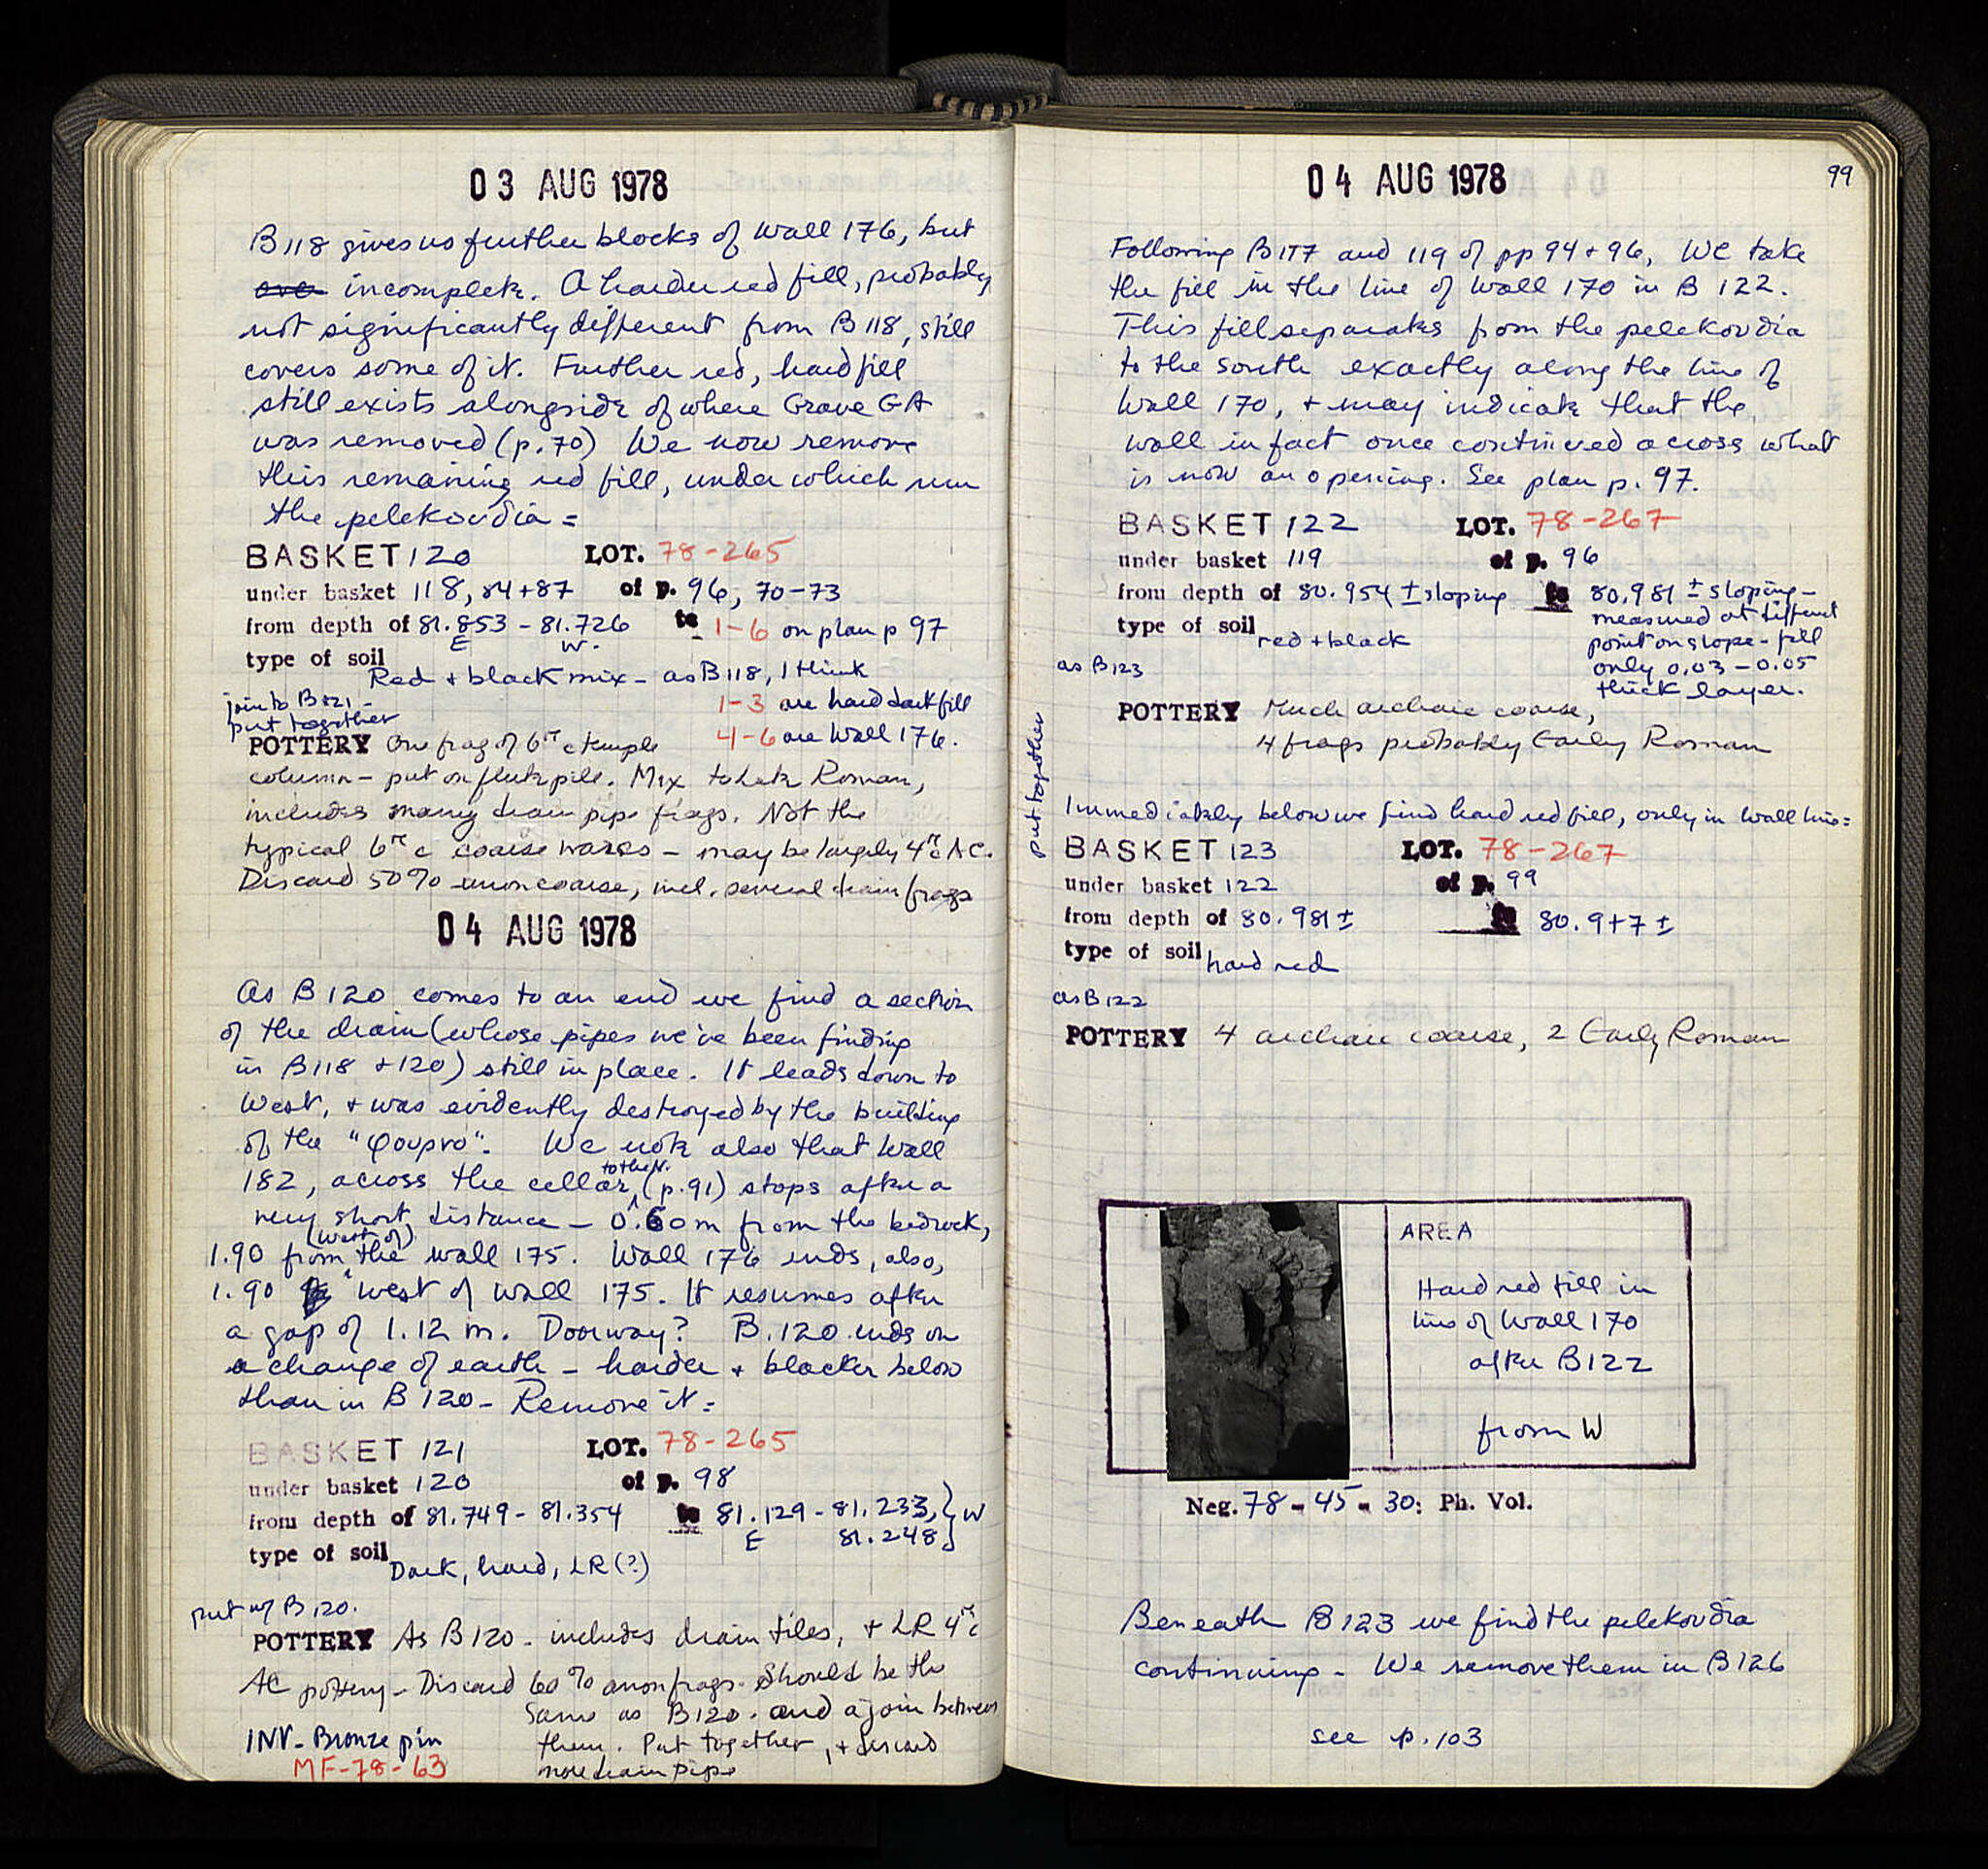 03 AUG 1978
B118 gives us further blocks of wall 176, but
are incomplete. A harder red fill, probably
not significantly different from B118, still
covers some of it. Further red, hard fill
still exists alongside of where Grave GA
was removed (p.70) We now remove
this remaining red fill, under which run
the pelekoudia =
BASKET 120 LOT. 78-265
under basket 118, 84+87 of p. 96, 70-73
from depth of 81.853 - 81.726 to 1-6 on plan p 97
E W.
type of soil Red + black mix - as B118, I think
1-3 are hard dark fill
4-6 are Wall 176.
join to B121 -
put together
POTTERY One frag of 6th c temple
column - put on flute pile. Mix to Late Roman,
includes many drain pipe frags. Not the
typical 6th c coarse wares - may be largely 4th c AC.
Discard 50% anon coarse, incl. several drain frags
04 AUG 1978
As B120 comes to an end we find a section
of the drain (whose pipes we've been finding
in B118 +120) still in place. It leads down to
West, + was evidently destroyed by the building
of the "φουρνο". We note also that Wall
182, across the cellar, to the N. (p.91) stops after a
very short distance - 0.60 m from the bedrock,
1.90 from (west of) the wall 175. Wall 176 ends, also,
1.90 west of wall 175. It resumes after
a gap of 1.12 m. Doorway? B.120 ends on
a change of earth - harder + blacker below
than in B120 - Remove it =
BASKET 121 LOT. 78-265
under basket 120 of p. 98
from depth of 81.749 - 81.354 to 81.129 - 81.233, } W
E 81.248
type of soil Dark, hard, LR(?)
put w/ B120.
POTTERY As B120 - includes drain tiles, + LR 4th c
AC pottery - Discard 60% anon frags. Should be the
same as B120. and a join between
them. Put together, + discard
more drain pipe
INV - Bronze pin
MF-78-63
04 AUG 1978 99
Following B117 and 119 of pp 94+96, we take
the fill in the line of Wall 170 in B 122.
This fill separates from the pelekoudia
to the south exactly along the line of
Wall 170, + may indicate that the
wall in fact once continued across what
is now an opening. See plan p. 97.
BASKET 122 LOT. 78-267
under basket 119 of p. 96
from depth of 80.954 ± sloping to 80.981 ± sloping -
measured at different
point on slope - fill
only 0.03 - 0.05
thick layer.
type of soil red + black
as B123
POTTERY Much archaic coarse,
4 frags probably Early Roman
put together
Immediately below we find hard red fill, only in wall line =
BASKET 123 LOT. 78-267
under basket 122 of p. 99
from depth of 80.981 ± to 80.947 ±
type of soil hard red
as B122
POTTERY 4 archaic coarse, 2 Early Roman
AREA
Hard red fill in
line of Wall 170
after B122
from W
Neg. 78 - 45 - 30: Ph. Vol.
Beneath B123 we find the pelekoudia
continuing - We remove them in B126
see p. 103